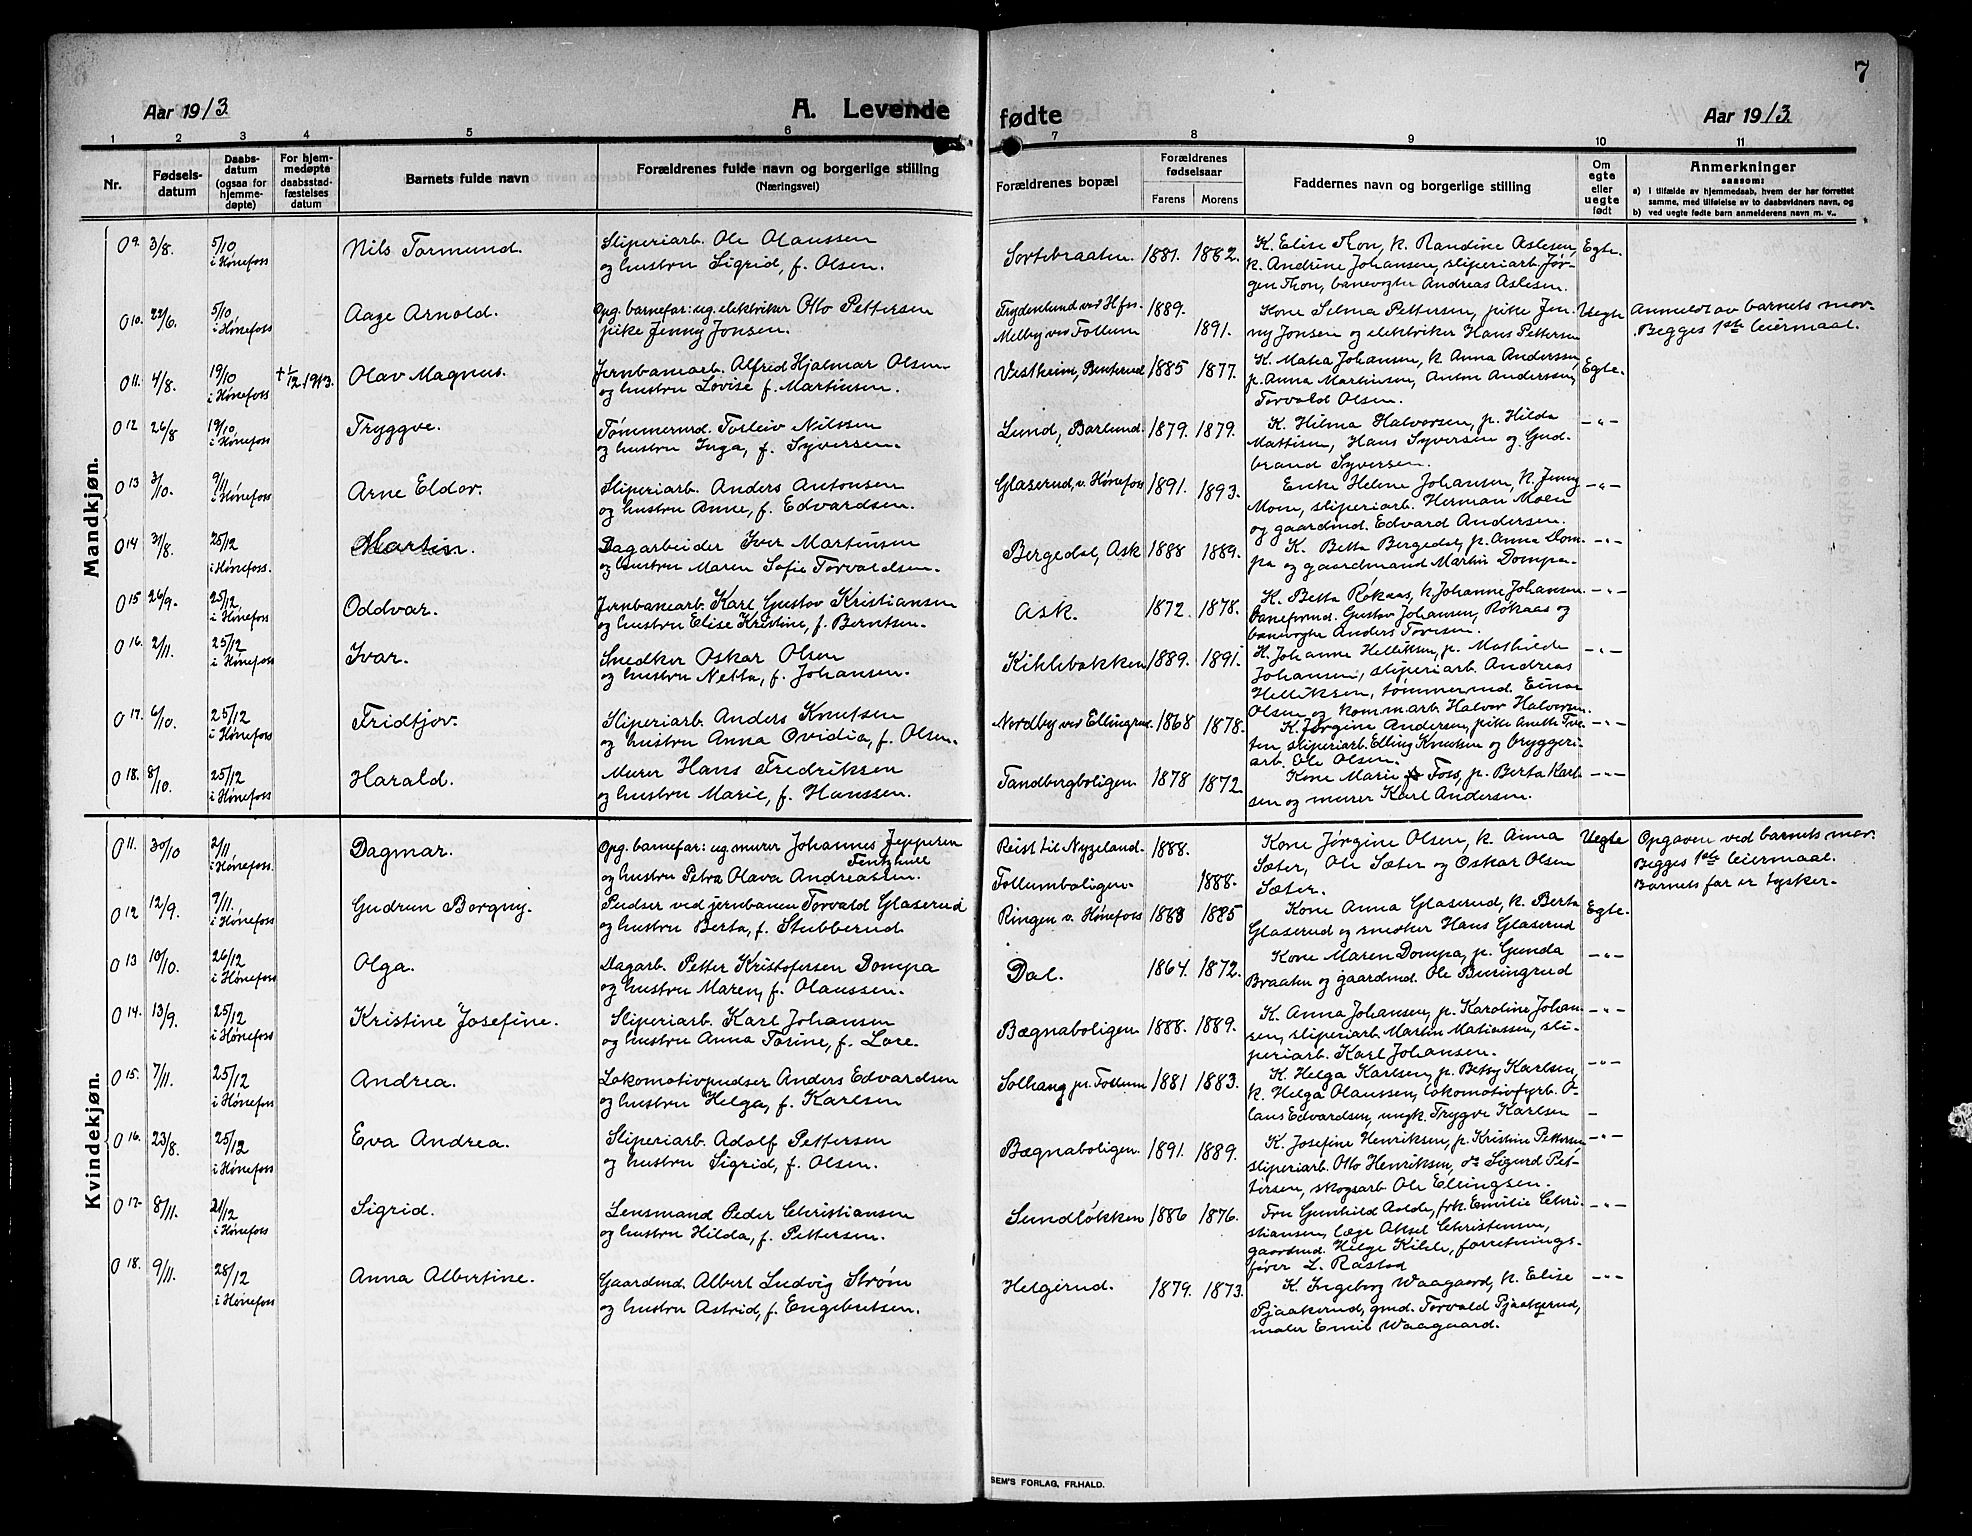 7
Aar 1913. A. Levende fødte Aar 1913.
1 2 3 4 5 6 7 8 9 10 11
Nr. Fødsels-datum Daabs-datum (ogsaa for hjemme-døpte) For hjem-medøpte daabsstad-fæstelses datum Barnets fulde navn Forældrenes fulde navn og borgerlige stilling (Næringsvei) Forældrenes bopæl Forældrenes fødselsaar Farens Morens Faddernes navn og borgerlige stilling Om egte eller uegte født Anmerkninger saasom:
a) I tilfælde av hjemmedaab, hvem der har forrettet samme, med tilføielse av to daabsvidners navn, og
b) ved uegte fødte barn anmelderens navn m. v..
Mandkjøn.
09. 3/8. 5/10 i Hønefoss Nils Tormund. Sliperiarb. Ole Olaussen
og hustru Sigrid, f. Olsen. Sortebraaten. 1881. 1882. K. Elise Thon, k. Randine Aslesen, Egte.
k. Andrine Johansen, sliperiarb. Jør-
gen Thon, banevogter Andreas Aslesen.
010. 22/6. 5/10 i Hønefoss Aage Arnold. Opg. barnefar: ug. elektriker Otto Pettersen
pike Jenny Jonsen. Frydenlund ved Hfss 1889. Kone Selma Pettersen, pike Jen- Uegte Anmeldt av barnets mor.
Melby ved Follum 1891. ny Jonsen og elektriker Hans Pettersen Begges 1ste leiermaal.
011. 4/8. 19/10 i Hønefoss † 1/12 1913. Olav Magnus. Jernbanearb. Alfred Hjalmar Olsen
og hustru Lovise f. Martinsen. Vestheim, Benterud 1885 1877. K. Matea Johansen, k. Anna Andersen, Egte.
p. Anna Martinsen, Anton Anderssen,
Torvald Olsen.
012 26/8 19/10. i Hønefoss Tryggve. Tømmermd. Torleiv Nilssen
og hustru Inga, f. Syversen. Lund, Barlund. 1879. 1879. K. Hilma Halvorsen, p. Hilda -"-
Mattisen, Hans Syversen og Gud-
brand Syversen.
013 3/10. 9/11. i Hønefoss Arne Eldor. Sliperiarb. Anders Antonsen
og hustru Anne, f. Edvardsen. Glaserud, v. Hønefoss 1891. 1893. Enke Helene Johansen, k. Jenny -"-
Moen, sliperiarb. Herman Moen
og gaardmd. Edvard Andersen.
014 31/8. 25/12 i Hønefoss. Martin. Dagarbeider Iver Martinsen
og hustru Maren Sofie Torvaldsen. Bergedal, Ask 1888 1889. K. Betta Bergedal, p. Anna Dom- -"-
pa og gaardmand Martin Dompa.
015 26/9. 25/12. i Hønefoss Oddvar. Jernbanearb. Karl Gustov Kristiansen
og hustru Elise Kristine, f. Berntsen. Ask. 1872. 1878. K. Betta Røkaas, k. Johanne Johansen -"-
baneformd. Gustov Johansen, Røkaas og
banevogter Anders Toresen.
016. 2/11. 25/12 i Hønefoss Ivar. Snedker Oskar Olsen
og hustru Netta, f. Johansen. Kihlebakken 1889. 1891. K. Johanne Helliksen, p. Mathilde -"-
Johansen, sliperiarb. Andreas
Helliksen, tømmermd. Einar
Olsen og komm.arb. Halvor Halvorsen.
017. 6/10. 25/12 i Hønefoss Fridtjov. Sliperiarb. Anders Knutsen
og hustru Anna Ovidia, f. Olsen. Nordby ved Ellingrud. 1868 1878. K. Jørgine Andersen, pike Anette Tve- -"-
ten, sliperiarb. Elling Knutsen og bryggeri-
arb. Ole Olsen.
018. 8/10. 25/12 i Hønefoss Harald. Murer Hans Fredriksen
og hustru Marie, f. Hanssen. Tandbergboligen. 1878 1872. Kone Marie Foss, p. Berta Karl- -"-
sen og murer Karl Andersen.
Kvindekjøn.
011. 30/10 2/11 i Hønefoss Dagmar. Opg. barnefar: ug murer Johannes Jeppesen
og hustru Petra Olava Andreassen. Reist til Nyzeland. 1888. Kone Jørgine Olsen, k. Anna Uegte Opgaven ved barnets mor.
Follumboligen. 1888. Sæter, Ole Sæter og Oskar Olsen Begges 1ste leiermaal.
Sæter. Barnets far er tysker.
012 12/9. 9/11. i Hønefoss Gudrun Borgny. Pudser ved jernbanen Torvald Glaserud
og hustru Berta, f. Stubberud. Ringen v. Hønefoss 1883 1885 Kone Anna Glaserud, k. Berta Egte.
Glaserud og snedker Hans Glaserud
013 10/10. 26/12 i Hønefoss Olga. Dagarb. Petter Kristofersen Dompa
og hustru Maren, f. Olaussen. Dal. 1864. 1872. Kone Maren Dompa, p. Gunda -"-
Braaten og gaardmd. Ole Buringrud
014. 13/9. 25/12 i Hønefoss Kristine Josefine. Sliperiarb. Karl Johansen
og hustru Anna Torine, f. Lore. Bægnaboligen 1888. 1889. K. Anna Johansen, p. Karoline Johan- -"-
sen, sliperiarb. Martin Matiassen, sli-
periarb. Karl Johansen.
015. 7/11. 25/12 i Hønefoss Andrea. Lokomotivpudser Anders Edvardsen
og hustru Helga, f. Karlsen Solhaug pr. Follum 1881 1883. K. Helga Karlsen, p. Betsy Karlsen, -"-
k. Helga Olaussen, lokomotivfyrb. O-
laus Edvardsen, ungk. Trygve Karlsen
016. 23/8. 25/12 i Hønefoss Eva Andrea. Sliperiarb. Adolf Pettersen
og hustru Sigrid, f. Olsen. Bægnaboligen. 1891. 1889. K. Josefine Henriksen, p. Kristine Pettersen -"-
sliperiarb. Otto Henriksen, do Sigurd Pet-
tersen, skogsarb. Ole Ellingsen.
017. 8/11. 21/12 i Hønefoss Sigrid. Lensmand Peder Christiansen
og hustru Hilda, f. Pettersen. Sundløkken 1886 1876. Fru Gunhild Aalde, frk. Emilie Chri- -"-
stiansen, læge Aksel Christensen,
gaardmd. Helge Kihle, forretnings-
fører L. Rastad
018. 9/11. 28/12 i Hønefoss Anna Albertine. Gaardmd. Albert Ludvig Strøm
og hustru Astrid, f. Engebretsen. Helgerud. 1879. 1873. K. Ingeborg Waagaard, k. Elise -"-
Pjaakerud, gmd. Torvald Pjaakerud,
maler Emil Waagaard.
SEM'S FORLAG, FR.HALD.